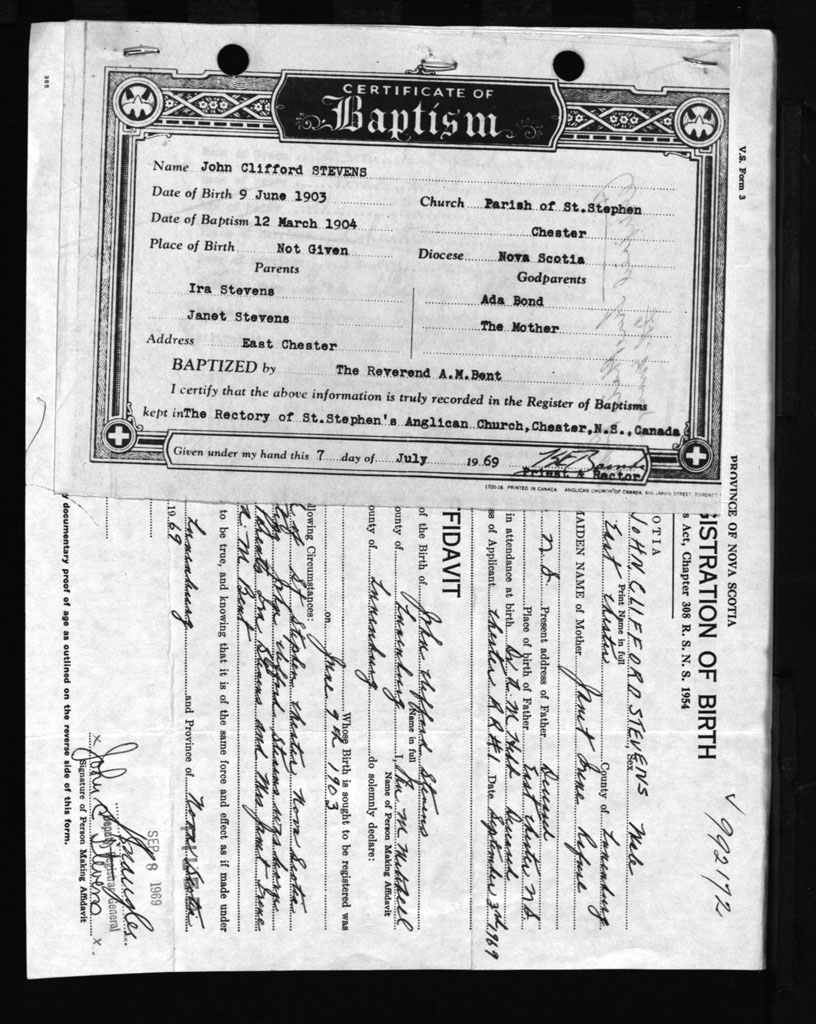 CERTIFICATE OF
Baptism
Name John Clifford STEVENS
Date of Birth 9 June 1903
Church Parish of St.Stephen
Date of Baptism 12 March 1904
Chester
Place of Birth Not Given
Diocese Nova Scotia
Parents
Godparents
Ira Stevens
Ada Bond
Janet Stevens
The Mother
Address East Chester
BAPTIZED by The Reverend A.M.Bent
I certify that the above information is truly recorded in the Register of Baptisms
kept in The Rectory of St.Stephen's Anglican Church, Chester, N.S., Canada
Given under my hand this 7 day of July 1969
Priest & Rector
1720-26 PRINTED IN CANADA ANGLICAN CHURCH OF CANADA, 600 JARVIS STREET, TORONTO
385
V.S. Form 3
PROVINCE OF NOVA SCOTIA
ISTRATION OF BIRTH
s Act, Chapter 308 R. S. N. S. 1954
V 992192
OTIA
JOHN CLIFFORD STEVENS Sex Male
Print Name in full
East Chester County of Lunenburg
MAIDEN NAME of Mother Janet Irene
N.S. Present address of Father Deceased
Place of birth of Father East Chester N.S.
in attendance at birth Dr. Hebb Deceased
ss of Applicant Chester R.R.#1 Date September 3rd 1969
FFIDAVIT
of the Birth of John Clifford Stevens
Name in full
ounty of Lunenburg I,
Name of Person Making Affidavit
ounty of Lunenburg do solemnly declare:
Whose Birth is sought to be registered was
on June 9th 1903
llowing Circumstances:
of St Stephen Chester Nova Scotia
John Clifford Stevens was born
Parents Ira Stevens and Mrs Janet Irene
A M Bent
to be true, and knowing that it is of the same force and effect as if made under
Lunenburg and Province of Nova Scotia
1969
SEP 8 1969
Deputy Registrar General
x John C Stevens x
Signature of Person Making Affidavit
y documentary proof of age as outlined on the reverse side of this form.